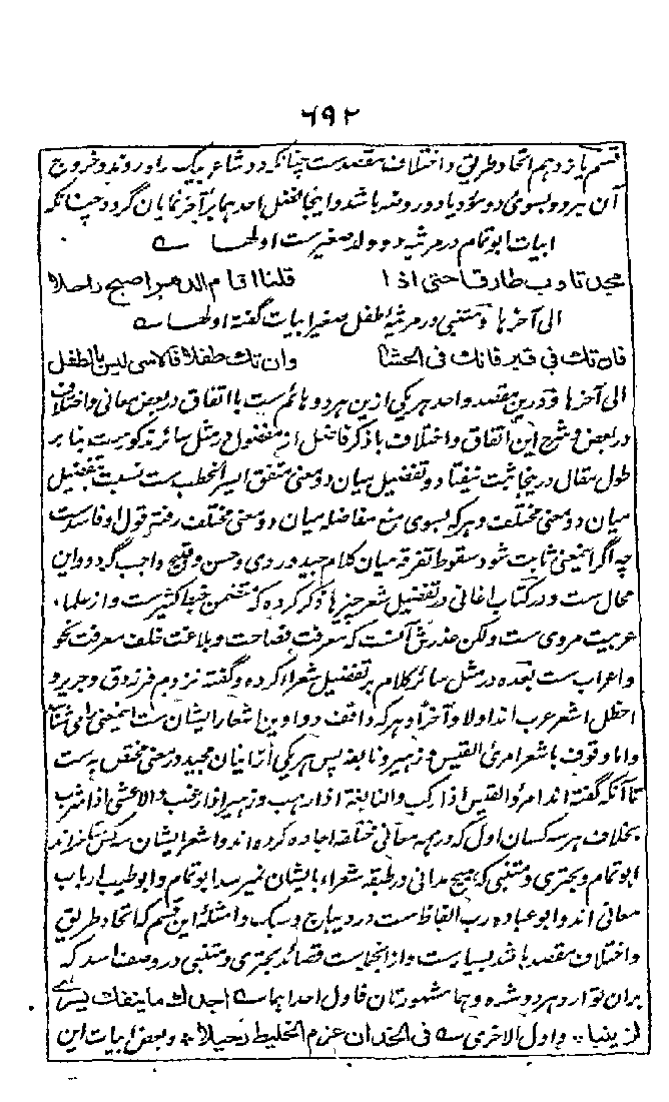 ٦٩٢
قسم یازدهم اتحاد طریق و اختلاف مقصدست چنانکه دو شاعر بیک راه روند و خروج
آن هر دو بسوی دو سؤدیا دو روضه باشد و اینجا فضل احدهما بر آخر نمایان گردد چنانکه
ابیات ابو تمام در مرثیه دو ولد صغیرست اولها ے
مجد تأوب طارقا حتی اذا قلنا اقام الدهر اصبح راحلا
الی آخرها و متنبی در مرثیهٔ طفل صغیر ابیات گفته اولها ے
فان تك فی قبر فانك فی الحشا وان تك طفلا فالاسی لیس بالطفل
الی آخرها و درین مقصد واحد هر یکی ازین هر دو هائم ست با اتفاق در بعض معانی و اختلاف
در بعض و شرح این اتفاق و اختلاف با ذکر فاضل از مفضول در مثل سائر مذکورست بنا بر
طول مقال در ینجا ثبت نیفتاد و تفضیل میان دو معنی متفق ایسر الخطب ست نسبت تفضیل
میان دو معنی مختلف و هر که بسوی منع مفاضله میان دو معنی مختلف رفته قول او فاسدست
چه اگر اینمعنی ثابت شود سقوط تفرقه میان کلام جید و ردی و حسن و قبیح واجب گردد و این
محال ست و در کتاب اغانی در تفضیل شعر چیزها ذکر کرده که متضمن خبط کثیرست و از علماء
عربیت مروی ست ولکن عذرش آنست که معرفت فصاحت و بلاغت خلف معرفت نحو
و اعراب ست بعده در مثل سائر کلام بر تفضیل شعراء کرده و گفته نزدم فرزدق و جریر و
اخطل اشعر عرب اند اولا و آخرا و هر که واقف دواوین اشعار ایشان ست اینمعنی را می شناسد
و اما وقوف با شعر امرئ القیس و زهیر و نابغه پس هر یکی از اینان مجید در معنی مختص به ست
تا آنکه گفته اند امرؤ القیس اذا رکب والنابغة اذا رهب و زهیر اذا رغب والاعشی اذا شرب
بخلاف هر سه کسان اول که در همه معانی مختلفه اجاده کرده اند و اشعر ایشان سه کس متاخراند
ابو تمام و بحتری و متنبی که هیچ مدانی در طبقه شعراء بایشان نمیرسد ابو تمام و ابو طیب ارباب
معانی اند و ابو عباده رب الفاظ ست در دیباج و سبک و امثلهٔ این قسم که اتحاد طریق
و اختلاف مقصد باشد بسیارست و از انجاست قصائد بحتری و متنبی در وصف اسد که
بران توارد هر دو شده و هما مشهورتان فاول احداهما ے اجدك ما ینفك یسری
لزینبا ٭ و اول الاخری ے فی الخد ان عزم الخلیط رحیلا ٭ و بعض ابیات این